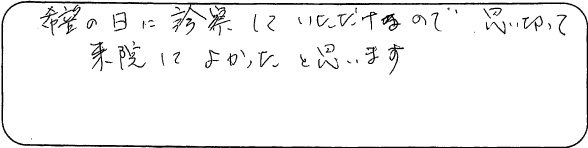 希望の日に診察していただけるので 思い切って
来院してよかったと思います